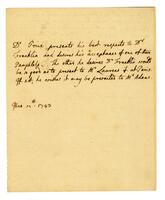 Dr. Price presents his best respects to Dr.
Franklin and desires his acceptance of one of these
Pamphlets. The other he desires Dr. Franklin would
be so good as to present to Mr. Laurens if at Paris
if not, he wishes it may be presented to Mr. Adams.